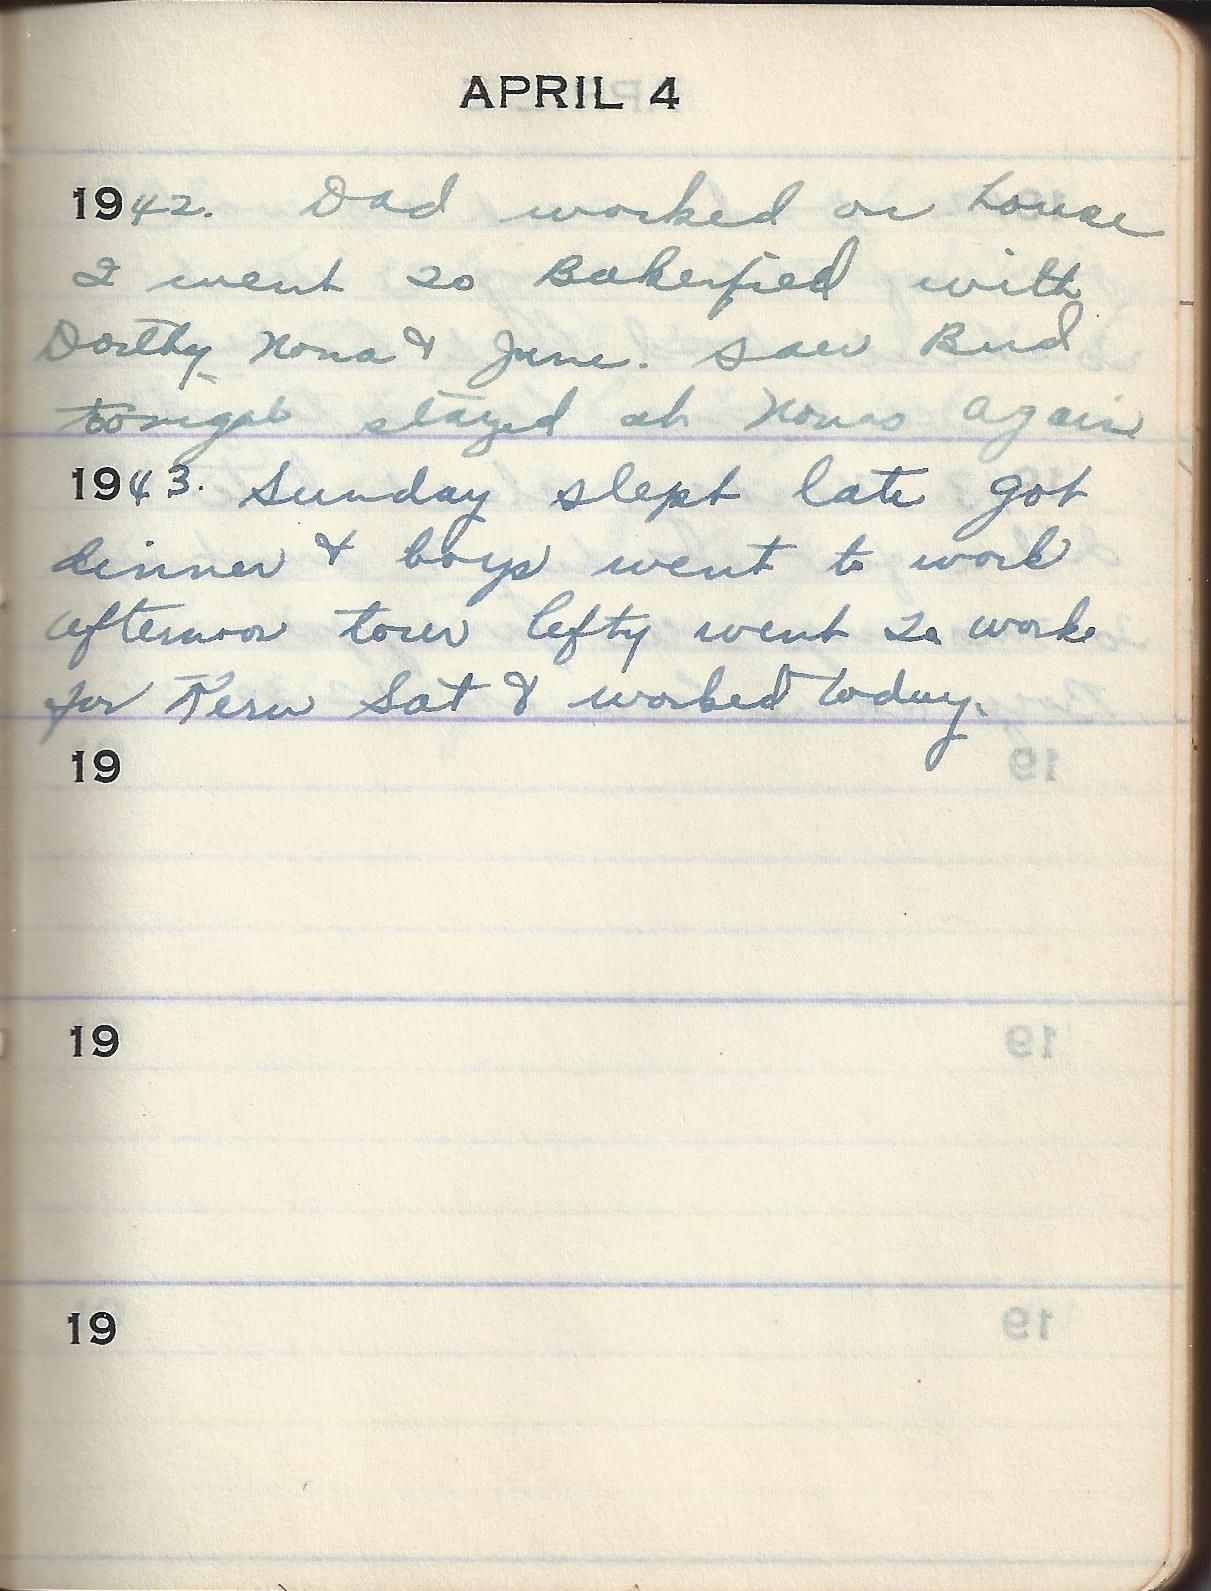 APRIL 4
1942. Dad worked on house
I went to Bakerfied with
Dorthy Nona & June. saw Bud
tonight stayed at Nonas again
1943. Sunday slept late got
dinner & boys went to work
afternoon tour lefty went to work
for Sat & worked today.
19
19
19